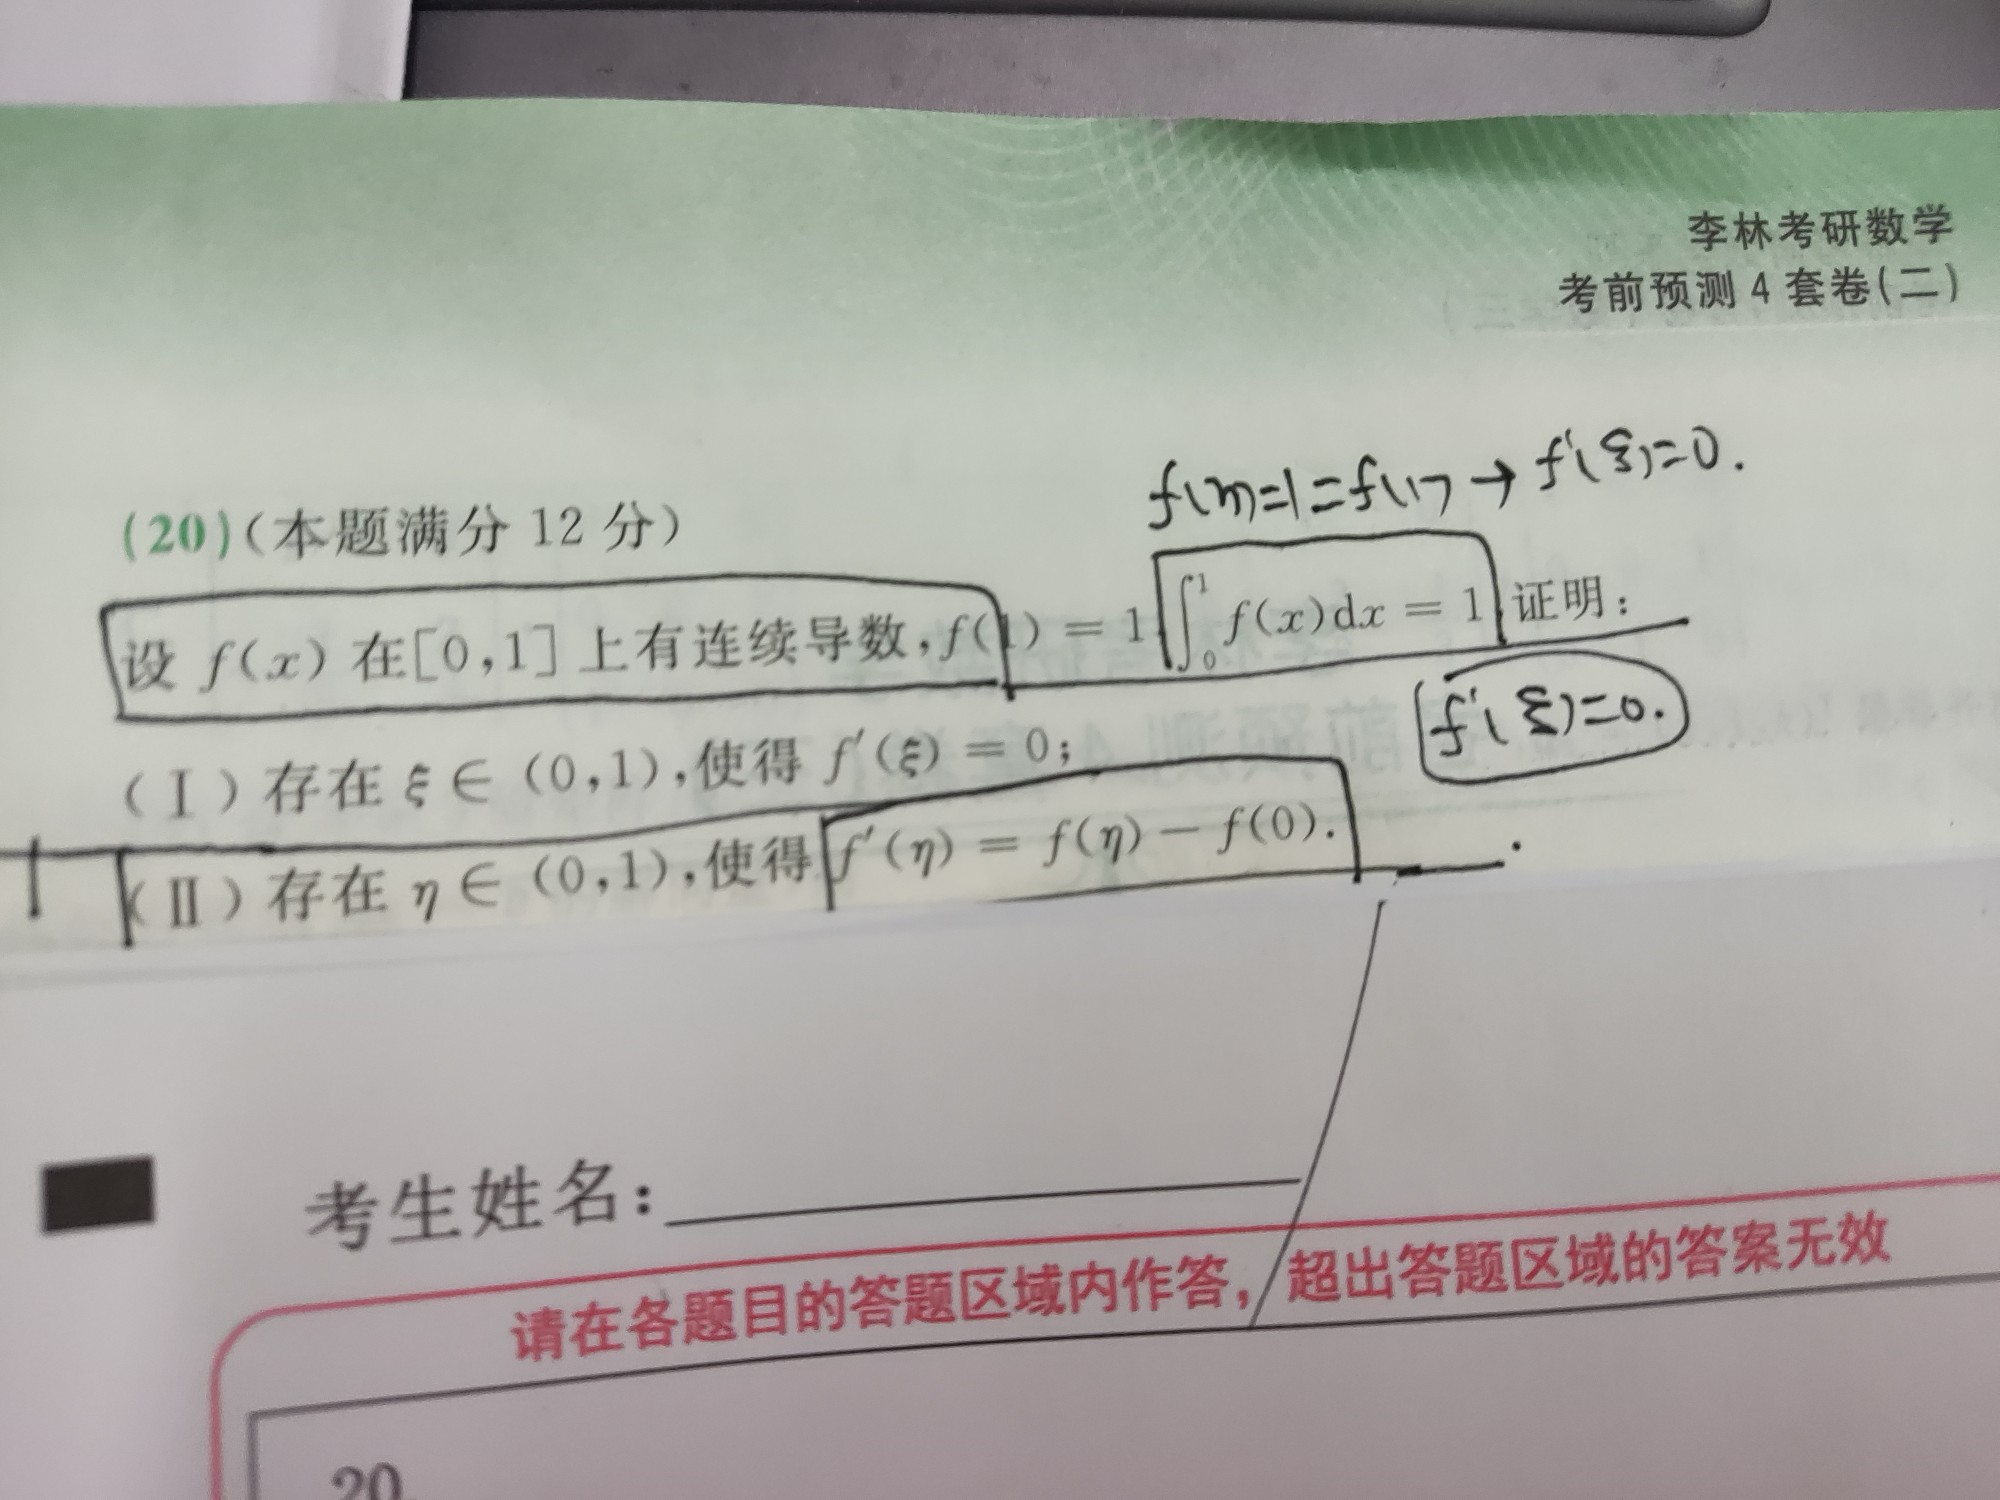 李林考研数学
考前预测4套卷(二)
f(m)=1=f(1)→f'(ξ)=0.
(20)(本题满分12分)
设 f(x) 在[0,1]上有连续导数,f(1) = 1 ∫₀¹ f(x)dx = 1 证明:
f'(ξ)=0.
(Ⅰ)存在 ξ∈(0,1),使得 f'(ξ) = 0;
(Ⅱ)存在 η∈(0,1),使得 f'(η) = f(η) − f(0).
考生姓名:
请在各题目的答题区域内作答,超出答题区域的答案无效
20